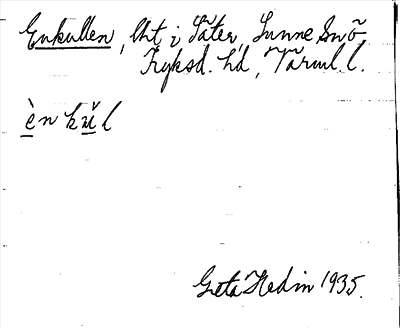 Enkullen, Uht i Säter, Sunne Snö
Fryksd. hd, Värml. l.
è n k ŭ l
Greta Hedin 1935.